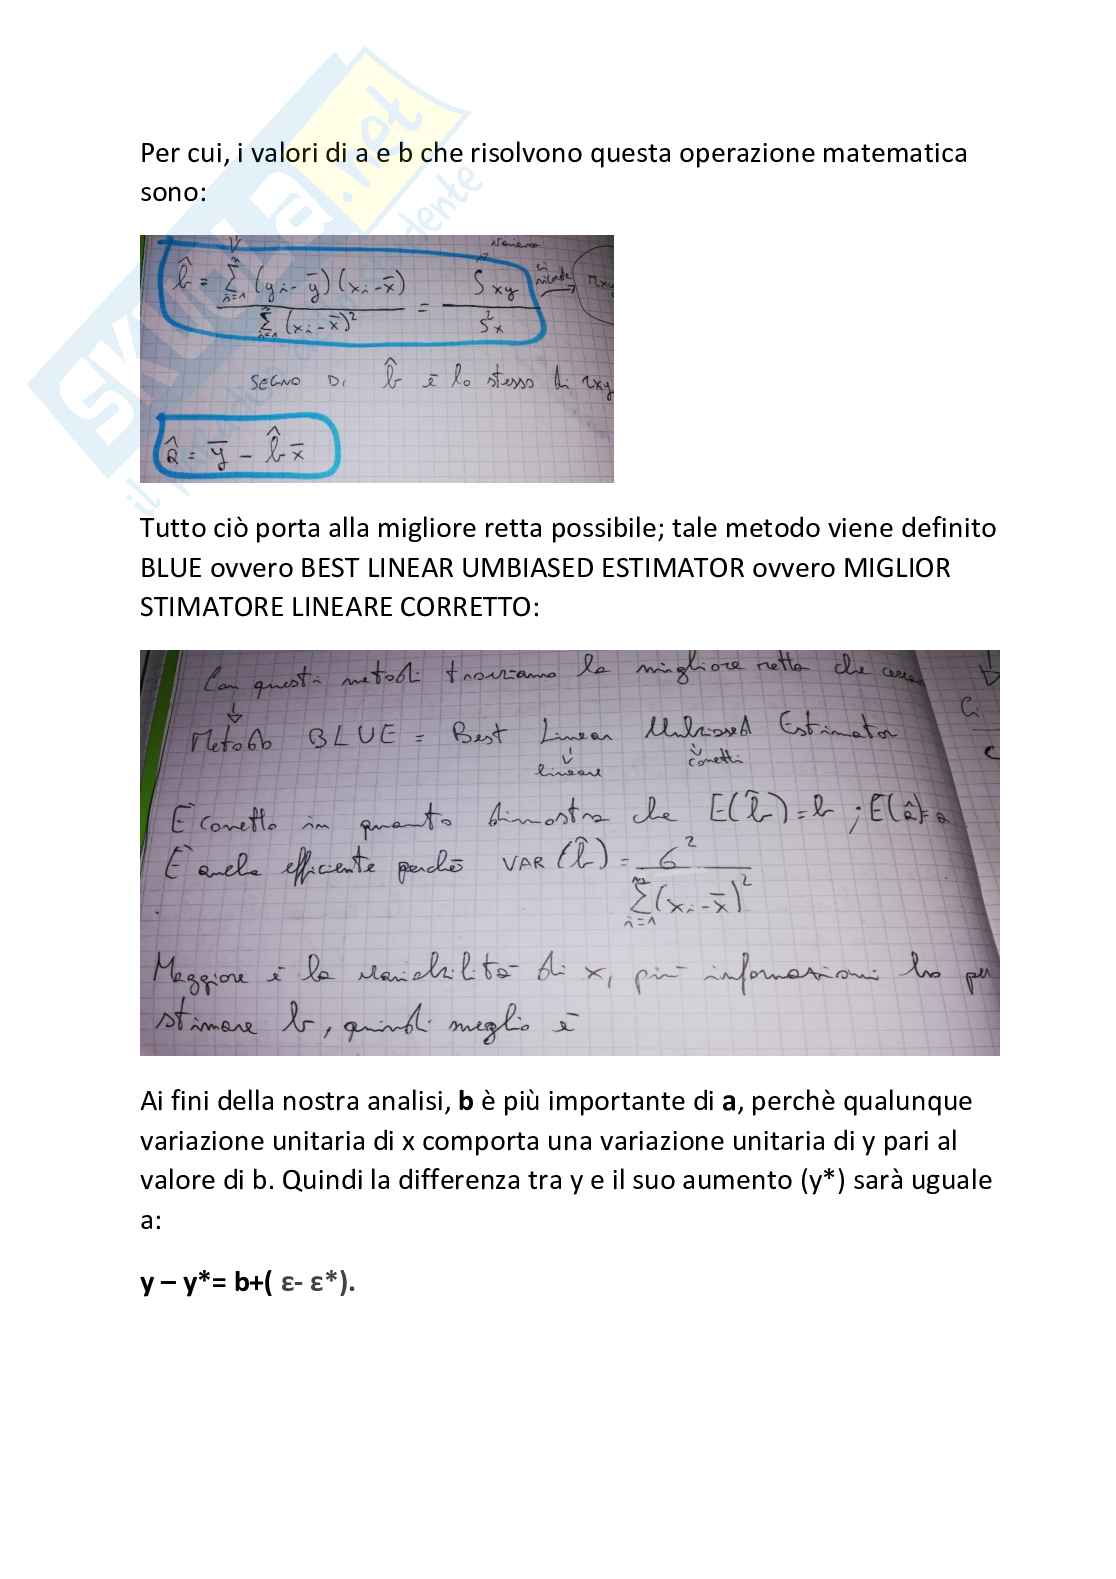 Per cui, i valori di a e b che risolvono questa operazione matematica
sono:
b̂ = Σⁿᵢ₌₁ (yᵢ - ȳ)(xᵢ - x̄) / Σⁿᵢ₌₁ (xᵢ - x̄)² = Sxy / S²x
SEGNO DI b̂ è lo stesso di rxy
â = ȳ - b̂ x̄
Tutto ciò porta alla migliore retta possibile; tale metodo viene definito
BLUE ovvero BEST LINEAR UMBIASED ESTIMATOR ovvero MIGLIOR
STIMATORE LINEARE CORRETTO:
Con questi metodi troviamo la migliore retta che
Metodo BLUE = Best Linear Unbiased Estimator
lineare corretti
E' corretto in quanto dimostra che E(b̂) = b ; E(â) = a
E' anche efficiente perchè VAR (b̂) = σ² / Σⁿᵢ₌₁ (xᵢ - x̄)²
Maggiore è la variabilità di x, più informazioni ho per
stimare b, quindi meglio è
Ai fini della nostra analisi, b è più importante di a, perchè qualunque
variazione unitaria di x comporta una variazione unitaria di y pari al
valore di b. Quindi la differenza tra y e il suo aumento (y*) sarà uguale
a:
y – y*= b+( ε- ε*).